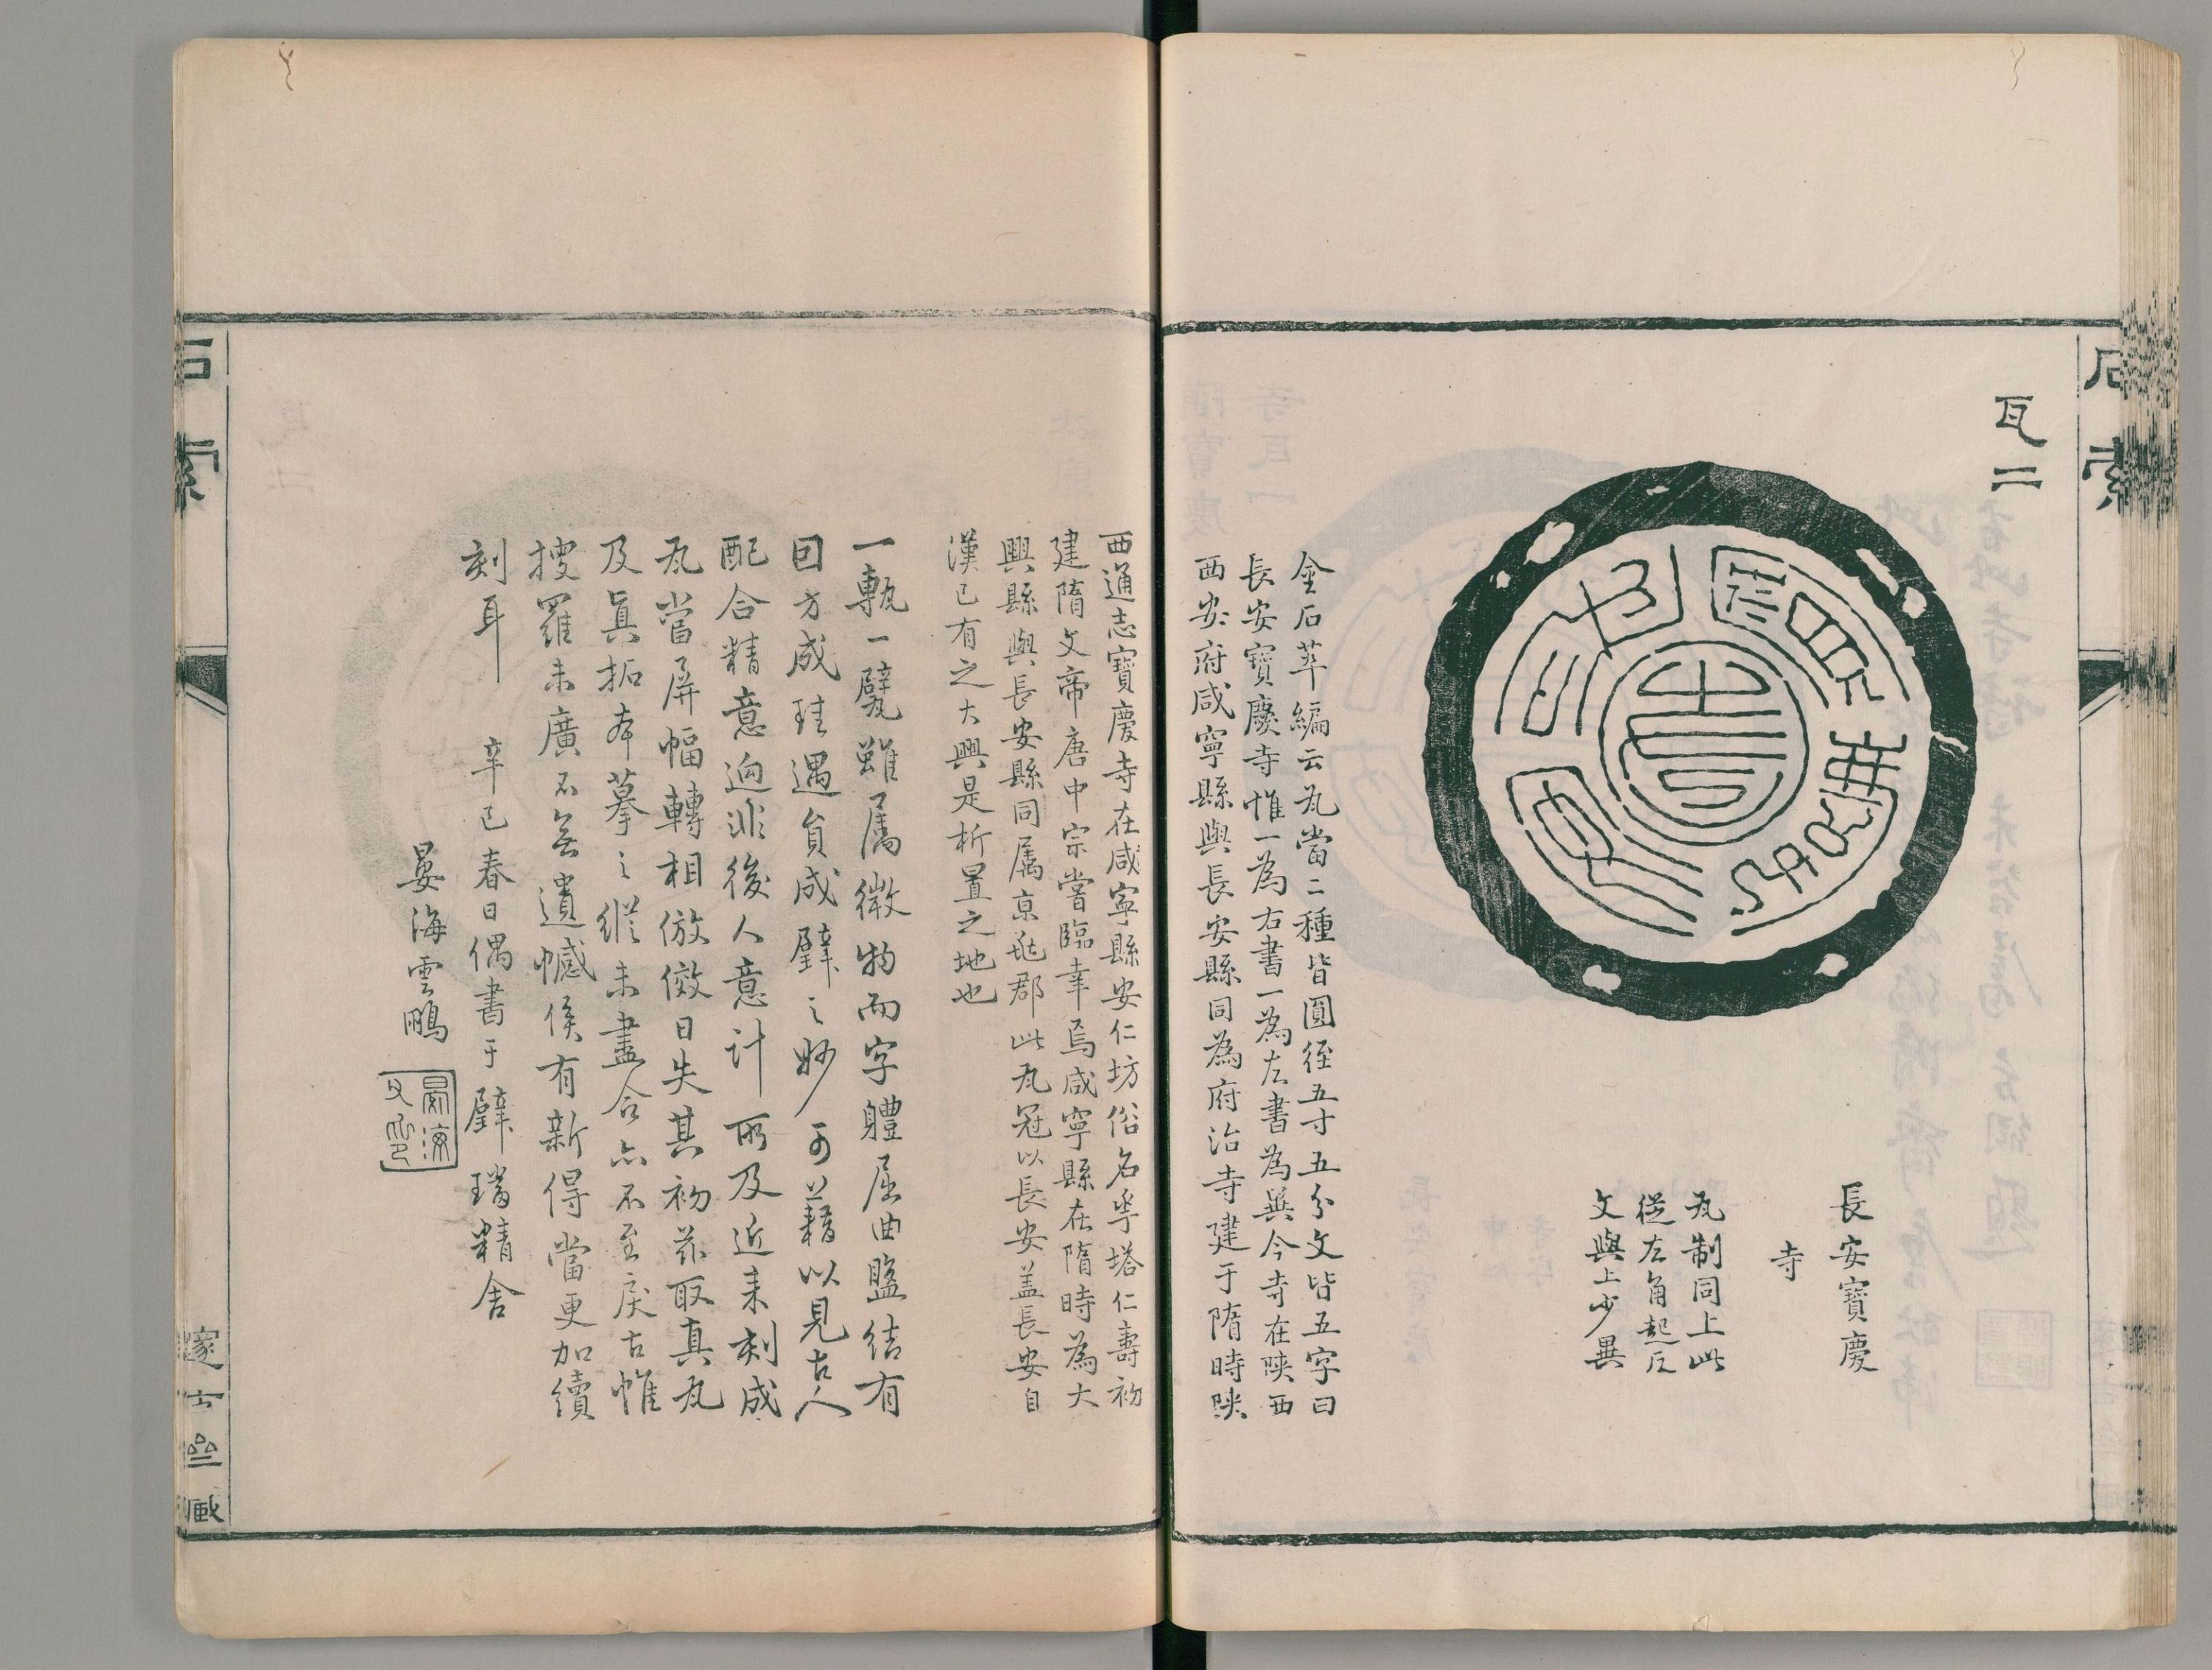 石索
瓦二
長安寶慶
寺
瓦制同上此
從左角起反
文與上少異
金石萃編云瓦當二種皆圓徑五寸五分文皆五字曰
長安寶慶寺惟一為右書一為左書為異今寺在陝西
西安府咸寧縣與長安縣同為府治寺建于隋時陝
西通志寶慶寺在咸寧縣安仁坊俗名華塔仁壽初
建隋文帝唐中宗嘗臨幸焉咸寧縣在隋時為大
興縣與長安縣同属京兆郡此瓦冠以長安盖長安自
漢已有之大興是析置之地也
一甎一甓雖属微物而字體屈曲盤結有
回方成珪遇員成璧之妙可藉以見古人
配合精意迥非後人意計所及近来刻成
瓦當屏幅轉相倣傚日失其初茲取真瓦
及真拓本摹之縱未盡合亦不至戾古惟
搜羅未廣不無遺憾俟有新得當更加續
刻耳　辛巳春日偶書于璧瑞精舍
晏海雲鵬
晏海
石索
邃古齋藏